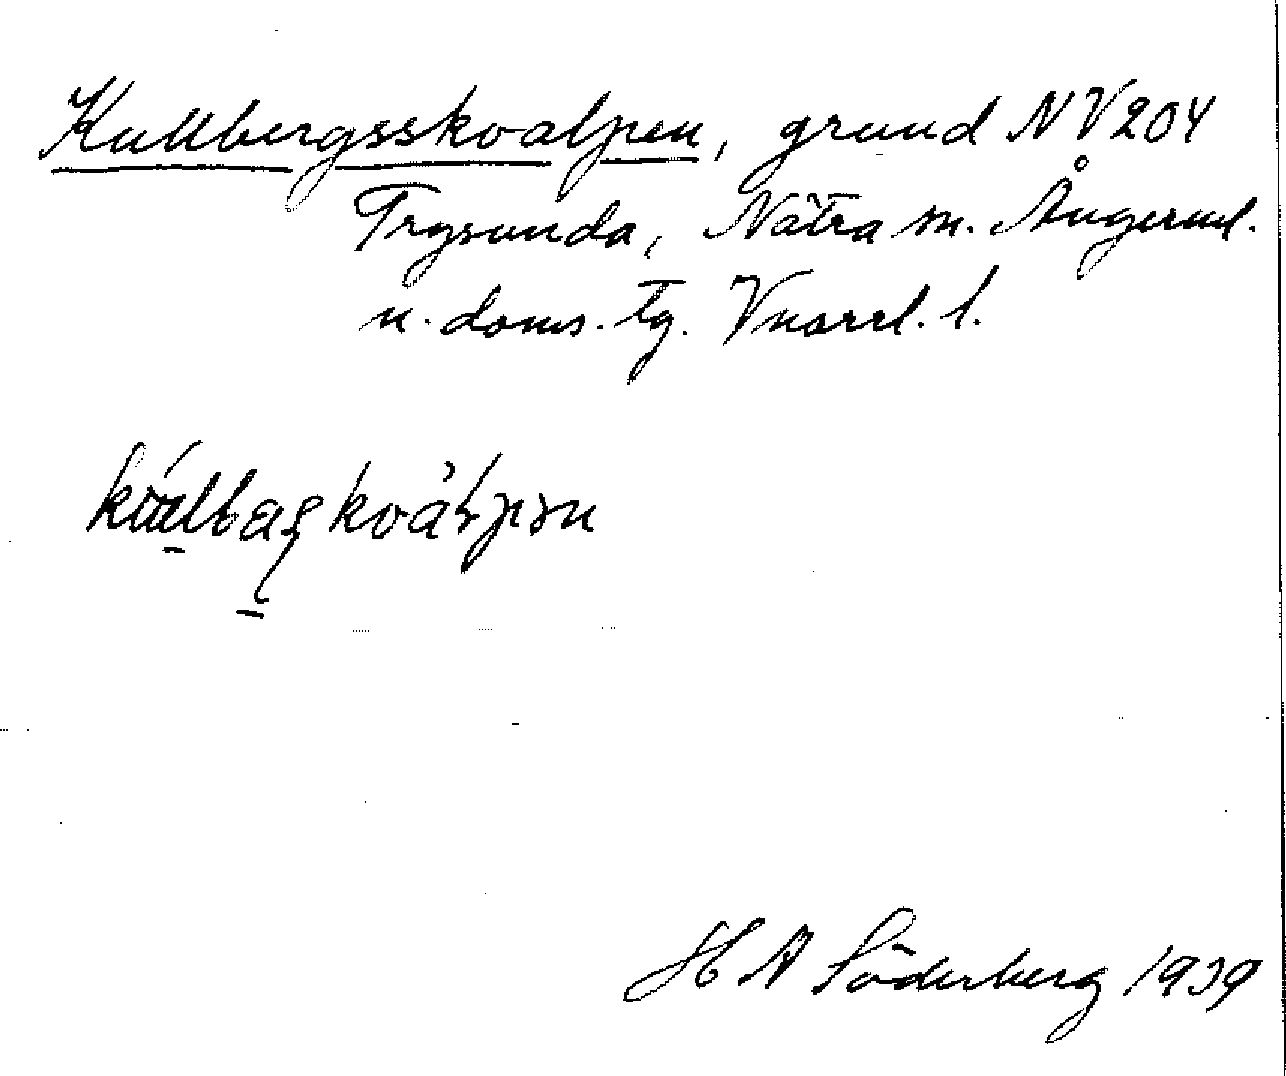 Kullbergsskvalpen, grund NV 204
Trysunda, Nätra sn. Ångerml.
n. doms. tg. Vnorrl. l.
H A Söderberg 1939